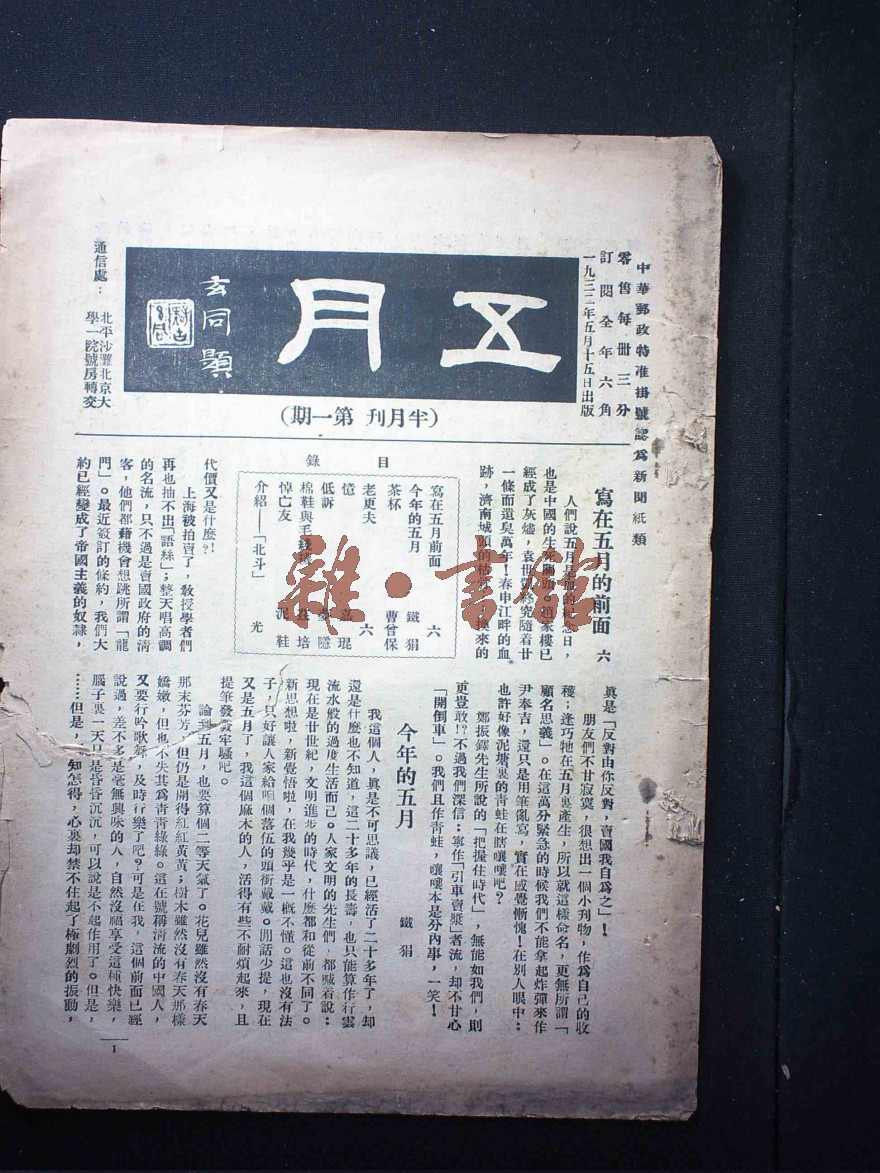 中華郵政特准掛號認為新聞紙類
零售每冊三分
訂閱全年六角
一九三三年五月十五日出版
五月
玄同題
通信處：
北平沙灘北京大
學一院號房轉交
(半月刊 第一期)
寫在五月的前面 六
人們說五月是
的紀念日，
也是中國的生死關頭。趙家樓已
經成了灰燼，袁世凱終究隨着廿
一條而遺臭萬年！春申江畔的血
跡，濟南城頭的
換來的
目 錄
寫在五月前面 六
今年的五月 鐵狷
茶杯 曹曾保
老更夫 六
憶
琨
低訴
隱
棉鞋與毛
培
悼亡友 泥鞋
介紹——「北斗」 光
代價又是什麼？
上海被拍賣了，教授學者們
再也抽不出「語絲」；整天唱高調
的名流，只不過是賣國政府的清
客，他們都藉機會想跳所謂「龍
門」。最近簽訂的條約，我們大
約已經變成了帝國主義的奴隸，
真是「反對由你反對，賣國我自為之」！
朋友們不甘寂寞，很想出一個小刊物，作為自己的收
穫；逢巧牠在五月裏產生，所以就這樣命名，更無所謂「
顧名思義」。在這萬分緊急的時候我們不能拿起炸彈來作
尹奉吉，還只是用筆亂寫，實在感覺慚愧！在別人眼中：
也許好像泥塘裏的青蛙在瞎嚷嚷吧？
鄭振鐸先生所說的「把握住時代」，無能如我們，則
更豈敢！？不過我們深信：寧作「引車賣漿」者流，却不甘心
「開倒車」。我們且作青蛙，嚷嚷本是分內事，一笑！
今年的五月 鐵狷
我這個人，真是不可思議，已經活了二十多年了，却
還是什麼也不知道，這二十多年的長壽，也只能算作行雲
流水般的過度生活而已。人家文明的先生們，都喊着說：
現在是廿世紀，文明進步的時代，什麼都和從前不同了。
新思想啦，新覺悟啦，在我幾乎是一概不懂。這也沒有法
子，只好讓人家給咱個落伍的頭銜戴戴。閒話少提，現在
又是五月了，我這個麻木的人，活得有些不耐煩起來，且
提筆發發牢騷吧。
論到五月，也要算個二等天氣了。花兒雖然沒有春天
那末芬芳，但仍是開得紅紅黃黃；樹木雖然沒有春天那樣
嬌嫩，但也不失其為青青綠綠。這在號稱清流的中國人，
又要行吟歌舞，及時行樂了吧？可是在我，這個前面已經
說過，差不多是毫無興味的人，自然沒福享受這種快樂，
腦子裏一天只是昏昏沉沉，可以說是不起作用了。但是，
……但是，
知怎得，心裏却禁不住起了極劇烈的振動，
1
雜·書館